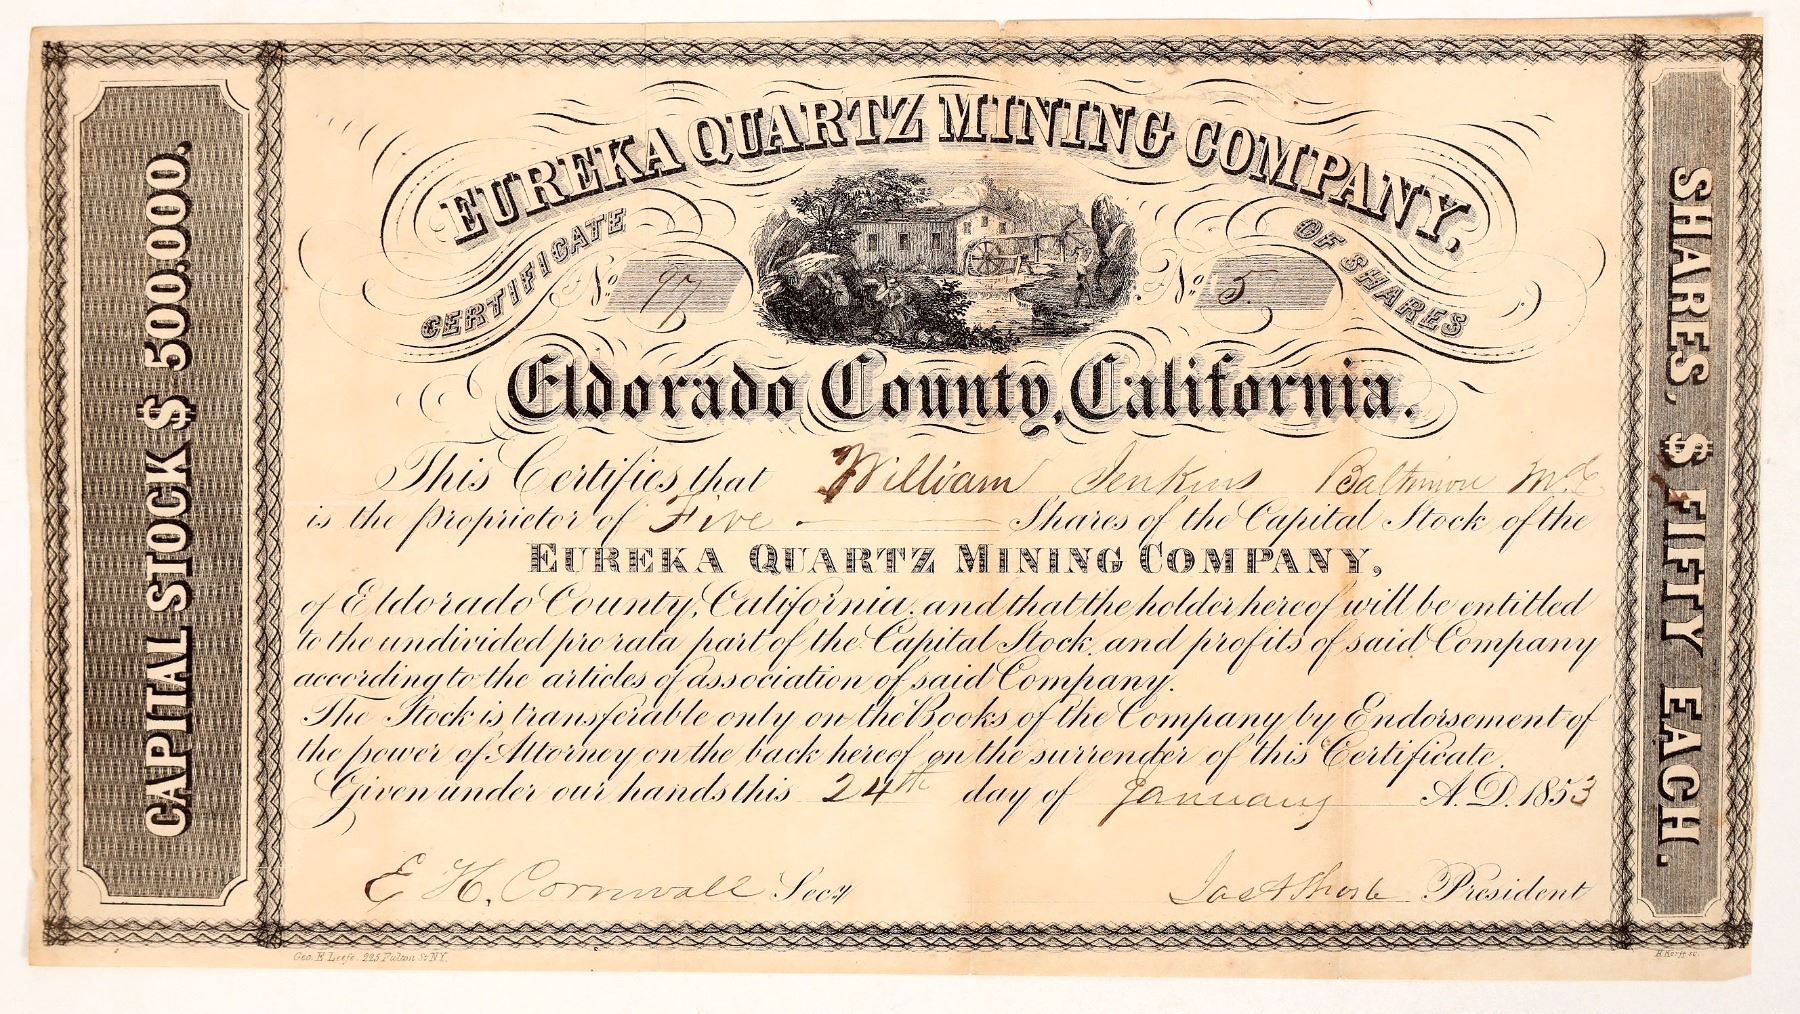 CAPITAL STOCK $ 500.000.
EUREKA QUARTZ MINING COMPANY,
CERTIFICATE OF SHARES
No. 97 No. 5.
Eldorado County, California.
This Certifies that William Jenkins Baltimore Md
is the proprietor of Five Shares of the Capital Stock of the
EUREKA QUARTZ MINING COMPANY,
of Eldorado County, California, and that the holder hereof will be entitled
to the undivided pro rata part of the Capital Stock, and profits of said Company
according to the articles of association of said Company.
The Stock is transferable only on the Books of the Company by Endorsement of
the power of Attorney on the back hereof on the surrender of this Certificate.
Given under our hands this 24th day of January A.D. 1853
E H. Cornwall Secy Jas President
SHARES, $ FIFTY EACH.
Geo. E Leefe. 225 Fulton St NY. H. Korff sc.